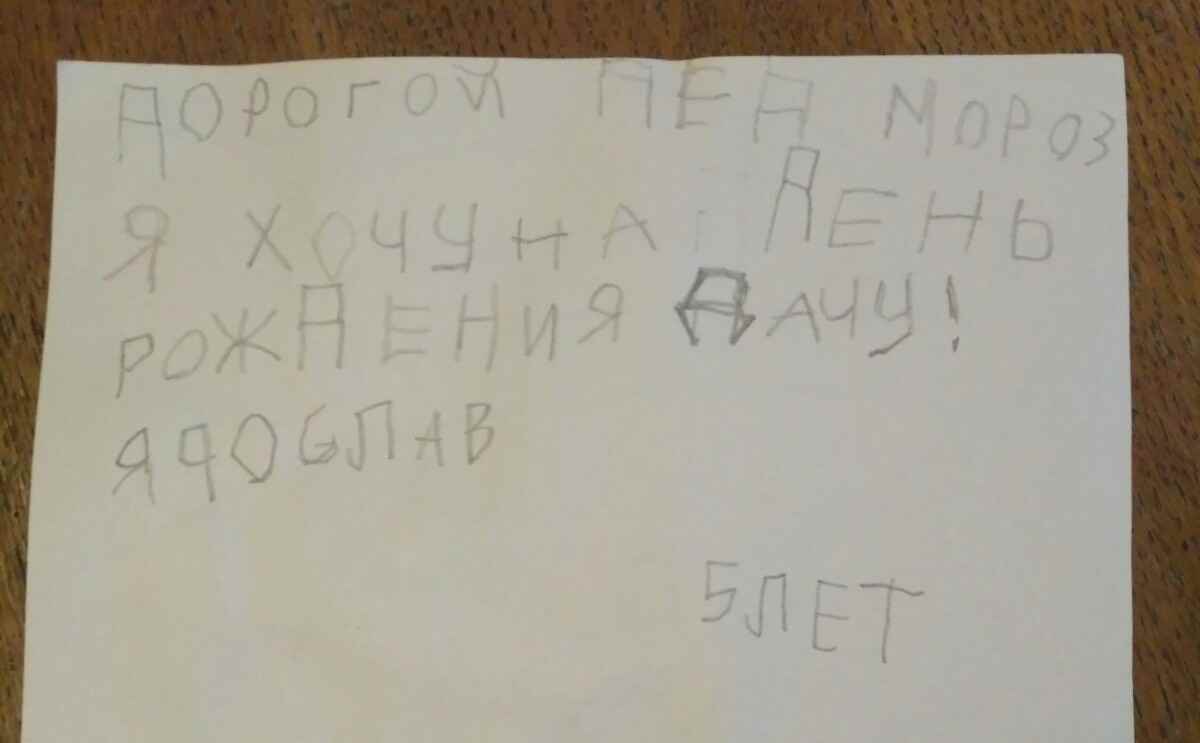 ДОРОГОЙ ДЕД МОРОЗ
Я ХОЧУ НА ДЕНЬ
РОЖДЕНИЯ ДАЧУ!
ЯРОСЛАВ
5 ЛЕТ